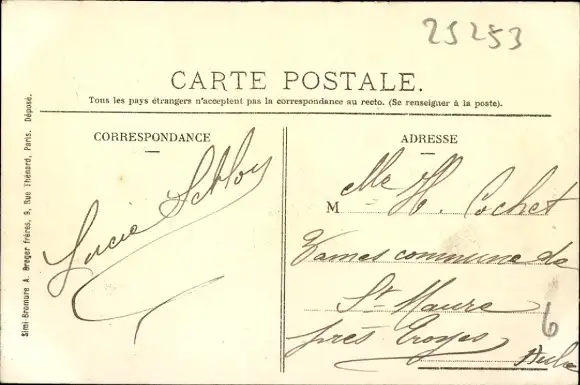 25253
CARTE POSTALE.
Tous les pays étrangers n'acceptent pas la correspondance au recto. (Se renseigner à la poste).
CORRESPONDANCE
Lucie
ADRESSE
M elle H. Cochet
commune de
St Maure
près Troyes
Aube
6
Simi-Bromure A. Breger frères, 9, Rue Thénard, Paris. Déposé.